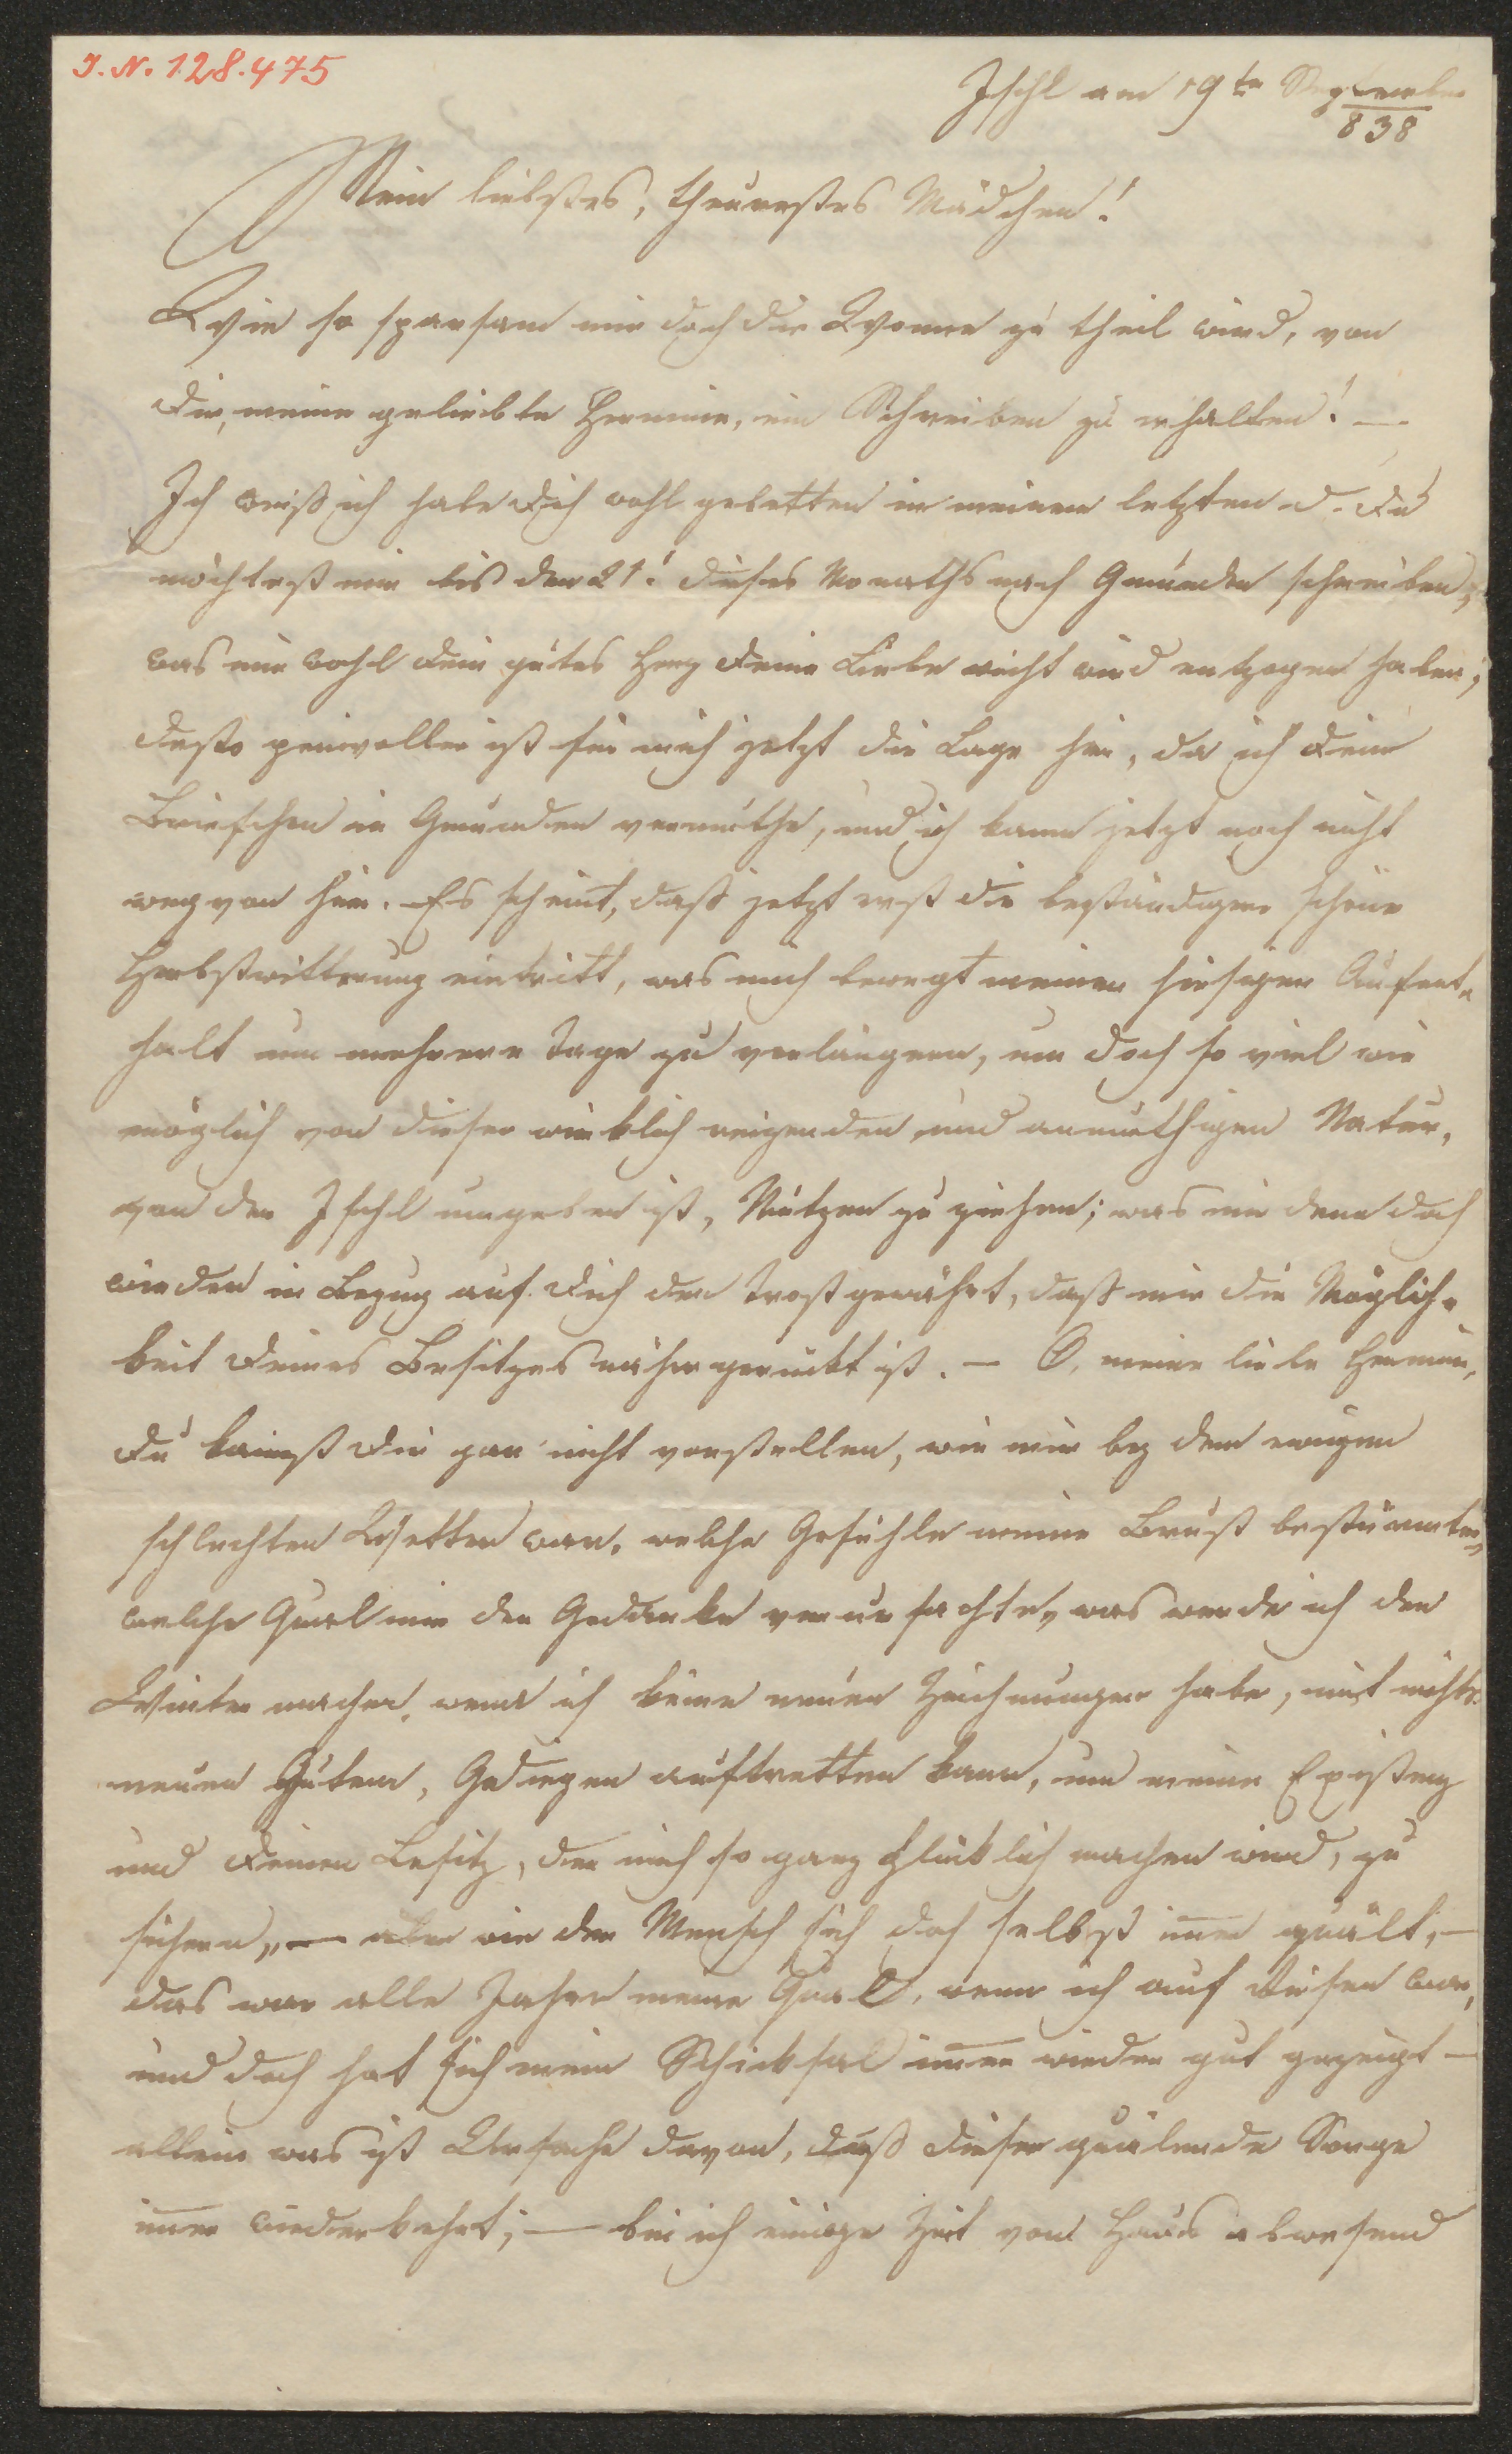 I. N. 128.475
Ischl am 19te September
838
Mein liebstes, theuerstes Mädchen!
Wie so sparsam mir doch die Wonne zu theil wird, von
Dir, meine geliebte Hermine, ein Schreiben zu erhalten! —
Ich weiß ich habe Dich wohl gebetten in meinem letzten d. Du
möchtest mir bis den 21t dieses Monaths nach Gmunden schreiben,
was mir wohl Dein gutes Herz Deine Liebe nicht wird entzogen haben;
desto peinvoller ist für mich jetzt die Lage hier, da ich Dein
Briefchen in Gmunden vermuthe, und ich kann jetzt noch nicht
weg von hier. Es scheint, daß jetzt erst die beständigere schöne
Herbstwitterung eintritt, was mich bewegt meinen hiesigen Aufent-
halt um mehrere Tage zu verlängern, um doch so viel wie
möglich von dieser wirklich reizenden und anmuthigen Natur,
von der Ischl umgeben ist, Nutzen zu ziehen; was mir denn doch
wieder in Bezug auf Dich den Trost gewährt, daß mir die Möglich-
keit Deines Besitzes näher gerückt ist. — O, meine liebe Hermin,
Du kannst Dir gar nicht vorstellen, wie mir bey dem ewigen
schlechten Wetter war, welche Gefühle meine Brust bestürmten,
welche Qual mir der Gedanke verursachte, was werde ich den
Winter machen, wenn ich keine neuen Zeichnungen habe, mit nichts
neuen Guten, Gediegen auftretten kann, um meine Existenz
und Deinen Besitz, der mich so ganz glücklich machen wird, zu
sichern, — aber wie der Mensch sich doch selbst immer quält, —
das war alle Jahre meine Qual, wenn ich auf Reisen war,
und doch hat sich mein Schicksal immer wieder gut gezeigt —
allein was ist Ursache davon, daß diese quälende Sorge
immer wiederkehrt; — bin ich einige Zeit vom Haus abwesend